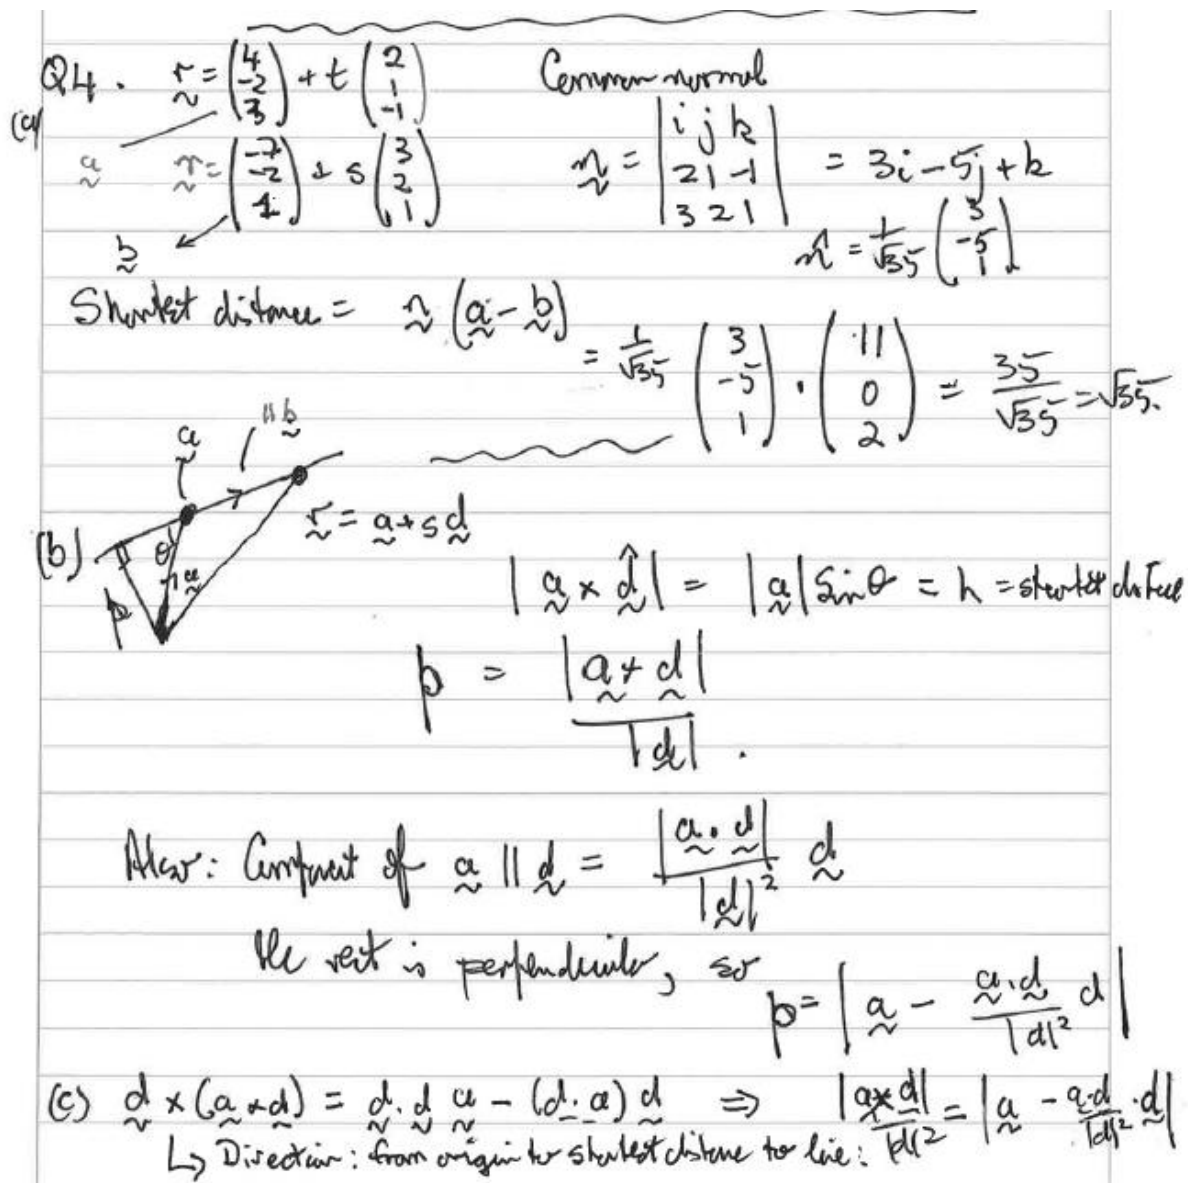 Q4. r = (4 -2 3) + t (2 1 -1) Common normal
(a)
a r = (-7 -2 1) + s (3 2 1) n = |i j k 2 1 -1 3 2 1| = 3i - 5j + k
b n̂ = 1/√35 (3 -5 1)
Shortest distance = n (a - b)
= 1/√35 (3 -5 1) · (11 0 2) = 35/√35 = √35.
a || b
(b) θ a p r = a + s d
|a × d̂| = |a| Sinθ = h = shortest distance
p = |a × d| / |d| .
Also: Component of a || d = |a · d| / |d|² d
the rest is perpendicular, so
p = |a - a·d / |d|² d|
(c) d × (a × d) = d · d a - (d · a) d ⇒ |a × d| / |d|² = |a - a·d / |d|² · d|
↳ Direction: from origin to shortest distance to line: